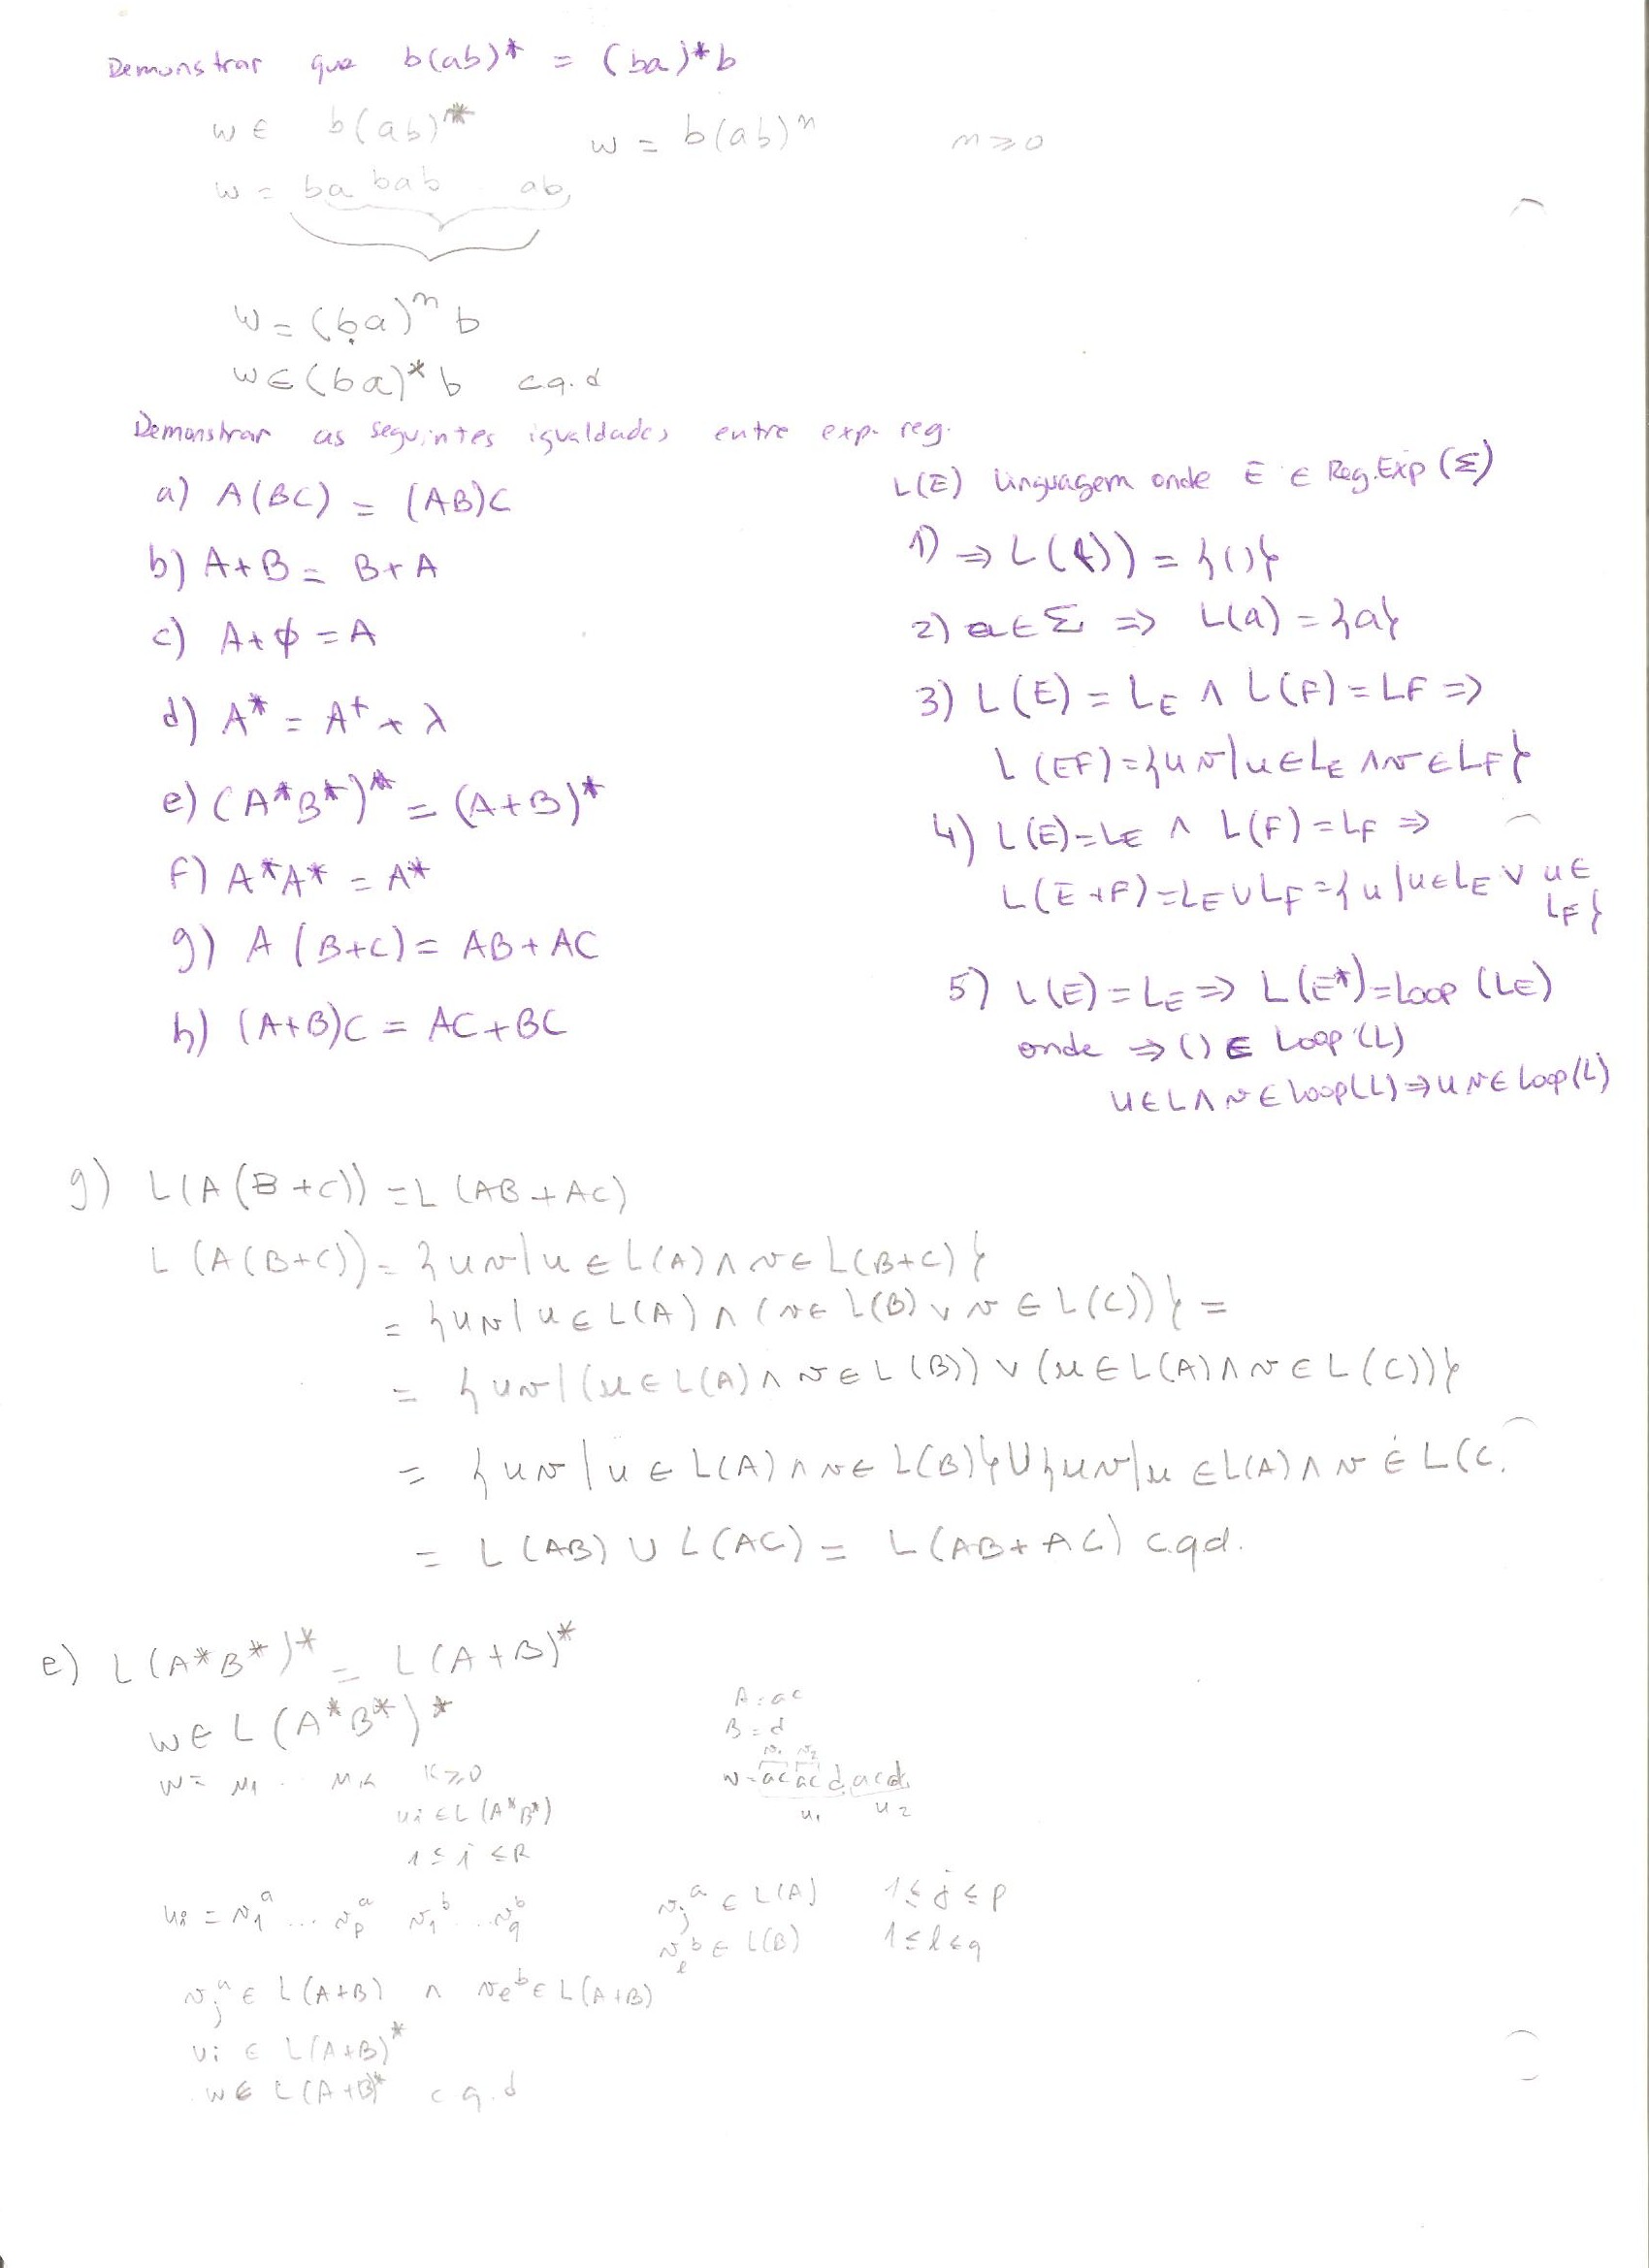 Demonstrar que b(ab)* = (ba)*b
w ∈ b(ab)* w = b(ab)ⁿ n ≥ 0
w = ba bab ab
w = (ba)ⁿ b
w ∈ (ba)* b c.q.d
Demonstrar as seguintes igualdades entre exp. reg.
a) A(BC) = (AB)C
b) A+B = B+A
c) A+ϕ = A
d) A* = A⁺ + λ
e) (A*B*)* = (A+B)*
f) A*A* = A*
g) A(B+C) = AB+AC
h) (A+B)C = AC+BC
L(E) linguagem onde E ∈ Reg.Exp(Σ)
1) ⇒ L(()) = {()}
2) a ∈ Σ ⇒ L(a) = {a}
3) L(E) = L_E ∧ L(F) = LF ⇒
L(EF) = {uv|u ∈ L_E ∧ v ∈ L_F}
4) L(E) = L_E ∧ L(F) = L_F ⇒
L(E+F) = L_E ∪ L_F = {u|u ∈ L_E ∨ u ∈
L_F}
5) L(E) = L_E ⇒ L(E*) = loop(LE)
onde ⇒ () ∈ Loop(L)
u ∈ L ∧ v ∈ loop(L) ⇒ uv ∈ loop(L)
g) L(A(B+C)) = L(AB+AC)
L(A(B+C)) = {uv|u ∈ L(A) ∧ v ∈ L(B+C)}
= {uv|u ∈ L(A) ∧ (v ∈ L(B) ∨ v ∈ L(C))} =
= {uv|(u ∈ L(A) ∧ v ∈ L(B)) ∨ (u ∈ L(A) ∧ v ∈ L(C))}
= {uv|u ∈ L(A) ∧ v ∈ L(B)} ∪ {uv|u ∈ L(A) ∧ v ∈ L(C
= L(AB) ∪ L(AC) = L(AB+AC) c.q.d.
e) L(A*B*)* = L(A+B)*
w ∈ L(A*B*)*
w = u₁ .. u_k k ≥ 0
ui ∈ L(A*B*)
1 ≤ i ≤ k
A = ac
B = d
v₁ v₂
w = ac ac d acd
u₁ u₂
ui = v₁ᵃ ... v_pᵃ v₁ᵇ ... v_qᵇ v_jᵃ ∈ L(A) 1 ≤ j ≤ p
v_ℓᵇ ∈ L(B) 1 ≤ ℓ ≤ q
v_jᵃ ∈ L(A+B) ∧ v_ℓᵇ ∈ L(A+B)
ui ∈ L(A+B)*
w ∈ L(A+B)* c q.d